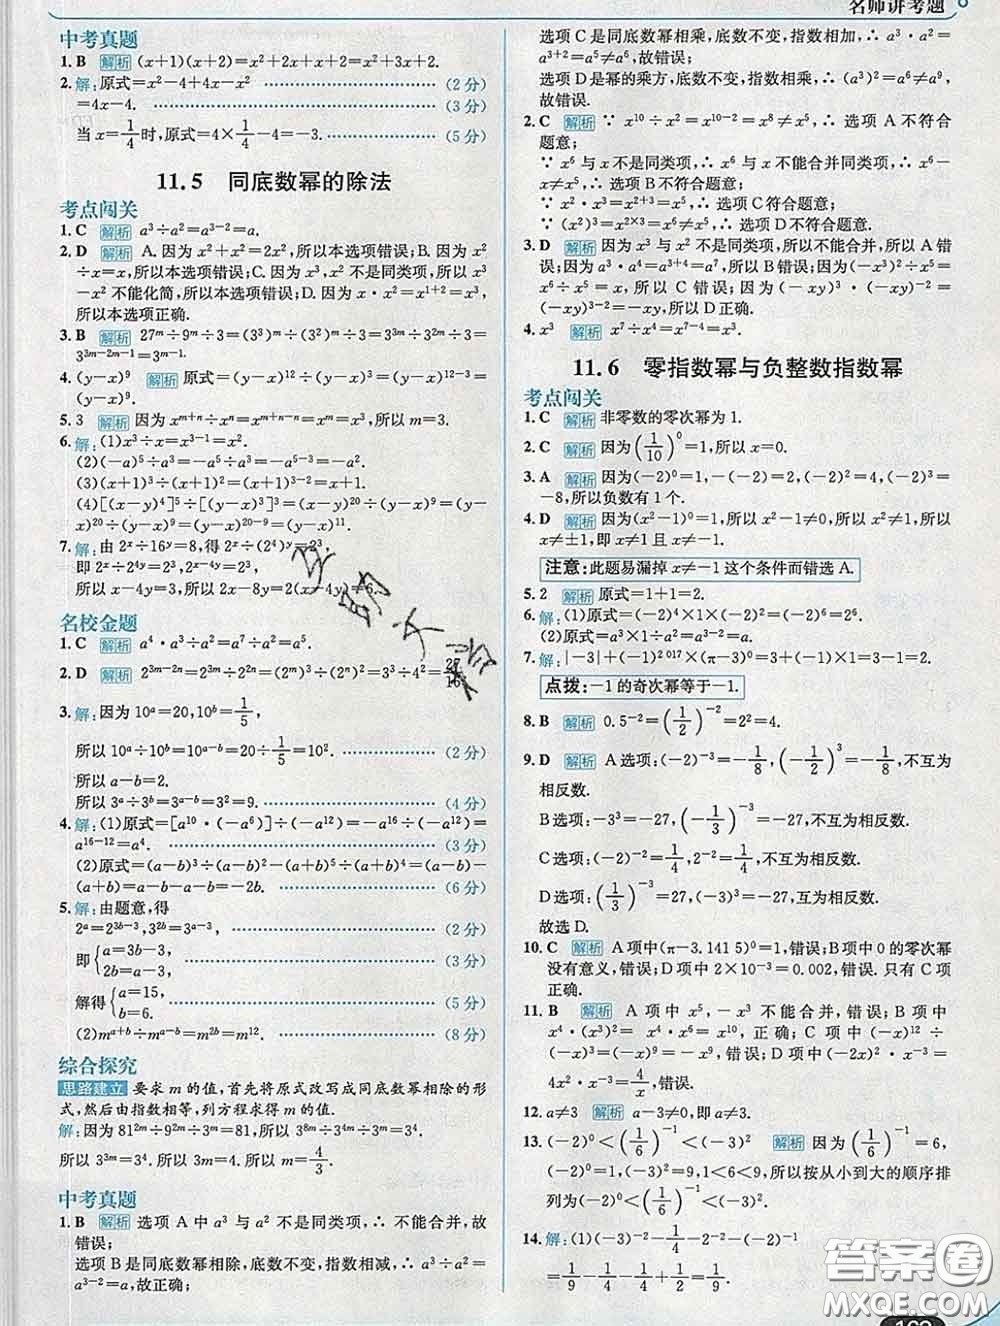 名师讲考题
中考真题
1. B 解析 (x+1)(x+2)=x²+2x+x+2=x²+3x+2.
2. 解:原式=x²-4+4x-x² (2分)
=4x-4. (3分)
当 x=1/4 时,原式=4×1/4-4=-3. (5分)
11.5 同底数幂的除法
考点闯关
1. C 解析 a³÷a²=a³⁻²=a.
2. D 解析 A. 因为 x²+x²=2x²,所以本选项错误;B. 因为 x²
÷x=x,所以本选项错误;C. 因为 x³,x² 不是同类项,所以 x³
-x² 不能化简,所以本选项错误;D. 因为 x·x²=x¹⁺²=x³,
所以本选项正确.
3. B 解析 27ᵐ÷9ᵐ÷3=(3³)ᵐ÷(3²)ᵐ÷3=3³ᵐ÷3²ᵐ÷3=
3³ᵐ⁻²ᵐ⁻¹=3ᵐ⁻¹.
4. (y-x)⁹ 解析 原式=(y-x)¹²÷(y-x)³=(y-x)⁹.
5. 3 解析 因为 xᵐ⁺ⁿ÷xⁿ=xᵐ⁺ⁿ⁻ⁿ=xᵐ=x³,所以 m=3.
6. 解:(1)x³÷x=x³⁻¹=x².
(2)(-a)⁵÷a³=-a⁵÷a³=-a⁵⁻³=-a².
(3)(x+1)³÷(x+1)²=(x+1)³⁻²=x+1.
(4)[(x-y)⁴]⁵÷[(y-x)³]³=(x-y)²⁰÷(y-x)⁹=(y-
x)²⁰÷(y-x)⁹=(y-x)²⁰⁻⁹=(y-x)¹¹.
7. 解:由 2ˣ÷16ʸ=8,得 2ˣ÷(2⁴)ʸ=2³,
即 2ˣ÷2⁴ʸ=2³,即 2ˣ⁻⁴ʸ=2³,
所以 x-4y=3,所以 2x-8y=2(x-4y)=6.
名校金题
1. C 解析 a⁴·a³÷a²=a⁷÷a²=a⁵.
2. D 解析 2³ᵐ⁻²ⁿ=2³ᵐ÷2²ⁿ=(2ᵐ)³÷(2ⁿ)²=3³÷4²=27/16.
3. 解:因为 10ᵃ=20,10ᵇ=1/5,
所以 10ᵃ÷10ᵇ=10ᵃ⁻ᵇ=20÷1/5=10². (2分)
所以 a-b=2.
所以 3ᵃ÷3ᵇ=3ᵃ⁻ᵇ=3²=9. (4分)
4. 解:(1)原式=[a¹⁰·(-a⁶)]÷(-a¹²)=-a¹⁶÷(-a¹²)=
a¹⁶⁻¹²=a⁴. (3分)
(2)原式=(a-b)³÷(a-b)²-(a+b)⁵÷(a+b)⁴=(a-b)-
(a+b)=a-b-a-b=-2b. (6分)
5. 解:由题意,得
2ᵃ=2³ᵇ⁻³,3²ᵇ=3ᵃ⁻³. (2分)
即{a=3b-3, 2b=a-3. (3分)
解得{a=15, b=6. (5分)
(2)mᵃ⁺ᵇ÷mᵃ⁻ᵇ=m²ᵇ=m¹². (8分)
综合探究
思路建立 要求 m 的值,首先将原式改写成同底数幂相除的形
式,然后由指数相等,列方程求得 m 的值.
解:因为 81²ᵐ÷9²ᵐ÷3ᵐ=81,所以 3⁸ᵐ÷3⁴ᵐ÷3ᵐ=3⁴.
所以 3³ᵐ=3⁴. 所以 3m=4. 所以 m=4/3.
中考真题
1. B 解析 选项 A 中 a³ 与 a² 不是同类项,∴ 不能合并,故
错误;
选项 B 是同底数幂相除,底数不变,指数相减,∴ a³÷a²=
a³⁻²=a,故正确;
选项 C 是同底数幂相乘,底数不变,指数相加,∴ a³·a²=
a³⁺²=a⁵≠a⁶,故错误;
选项 D 是幂的乘方,底数不变,指数相乘,∴ (a³)²=a⁶≠a⁹,
故错误.
2. C 解析 ∵ x¹⁰÷x²=x¹⁰⁻²=x⁸≠x⁵,∴ 选项 A 不符合
题意;
∵ x⁶ 与 x 不是同类项,∴ x⁶ 与 x 不能合并同类项,∴ x⁶-
x≠x⁵,∴ 选项 B 不符合题意;
∵ x²·x³=x²⁺³=x⁵,∴ 选项 C 符合题意;
∵ (x²)³=x²ˣ³=x⁶≠x⁵,∴ 选项 D 不符合题意.
3. D 解析 因为 x³ 与 x² 不是同类项,所以不能合并,所以 A 错
误;因为 a³·a⁴=a³⁺⁴=a⁷,所以 B 错误;因为(-x³)²÷x⁵=
x⁶÷x⁵=x,所以 C 错误;因为(-xy)³·(-xy)⁻²=
(-xy)³⁻²=-xy,所以 D 正确.
4. x³ 解析 x⁷÷x⁴=x⁷⁻⁴=x³.
11.6 零指数幂与负整数指数幂
考点闯关
1. C 解析 非零数的零次幂为 1.
2. C 解析 因为(1/10)⁰=1,所以 x=0.
3. A 解析 因为(-2)⁰=1,-(-2)=2,(-2)²=4,(-2)³=
-8,所以负数有 1 个.
4. D 解析 因为(x²-1)⁰=1,所以 x²-1≠0,所以 x²≠1,所以
x≠±1,即 x≠1 且 x≠-1.
注意:此题易漏掉 x≠-1 这个条件而错选 A.
5. 2 解析 原式=1+1=2.
6. 解:(1)原式=(-2)⁴×1×(-2)²=(-2)⁶=2⁶.
(2)原式=a²÷a²=1.
7. 解:|-3|+(-1)²⁰¹⁷×(π-3)⁰=3+(-1)×1=3-1=2.
点拨:-1 的奇次幂等于-1.
8. B 解析 0.5⁻²=(1/2)⁻²=2²=4.
9. D 解析 A 选项:(-2)⁻³=-1/8,(-1/2)³=-1/8,不互为
相反数.
B 选项:-3³=-27,(-1/3)⁻³=-27,不互为相反数.
C 选项:(-2)⁻²=1/4,2⁻²=1/4,不互为相反数.
D 选项:(1/3)⁻³=27,(-3)³=-27,互为相反数.
故选 D.
10. C 解析 A 项中(π-3.141 5)⁰=1,错误;B 项中 0 的零次幂
没有意义,错误;D 项中 2×10⁻³=0.002,错误. 只有 C 项
正确.
11. B 解析 A 项中 x⁵,-x³ 不能合并,错误;B 项中
x⁴·(x³)²=x⁴·x⁶=x¹⁰,正确;C 项中 -x¹²÷
(-x³)=x⁹≠-x⁹,错误;D 项中(-2x)²·x⁻³=
4x²·x⁻³=4/x,错误.
12. a≠3 解析 a-3≠0,即 a≠3.
13. (-2)⁰<(1/6)⁻¹<(-3)² 解析 因为(1/6)⁻¹=6,
(-2)⁰=1,(-3)²=9,1<6<9,所以按从小到大的顺序排
列为(-2)⁰<(1/6)⁻¹<(-3)².
14. 解:(1)(-3)⁻²-1/4-2⁻²-(-2)⁻¹=
1/9-1/4-1/4+1/2=1/9.
答案圈
MXQE.COM